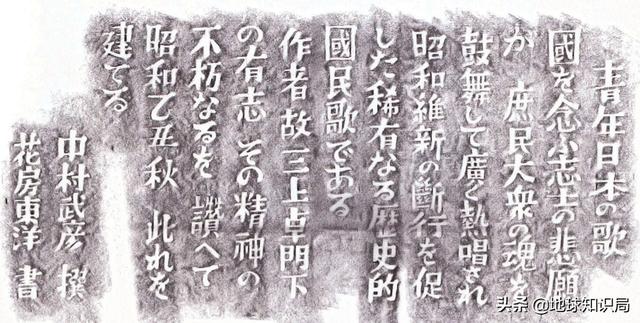 青年日本の歌
國を念ふ志士の悲願
が　庶民大衆の魂を
鼓舞して廣く熱唱され
昭和維新の斷行を促
した稀有なる歴史的
國民歌である
作者故　三上卓門下
の有志　その精神の
不朽なるを　讃へて
昭和乙丑秋　此れを
建てる
中村武彦　撰
花房東洋　書
头条 @地球知识局